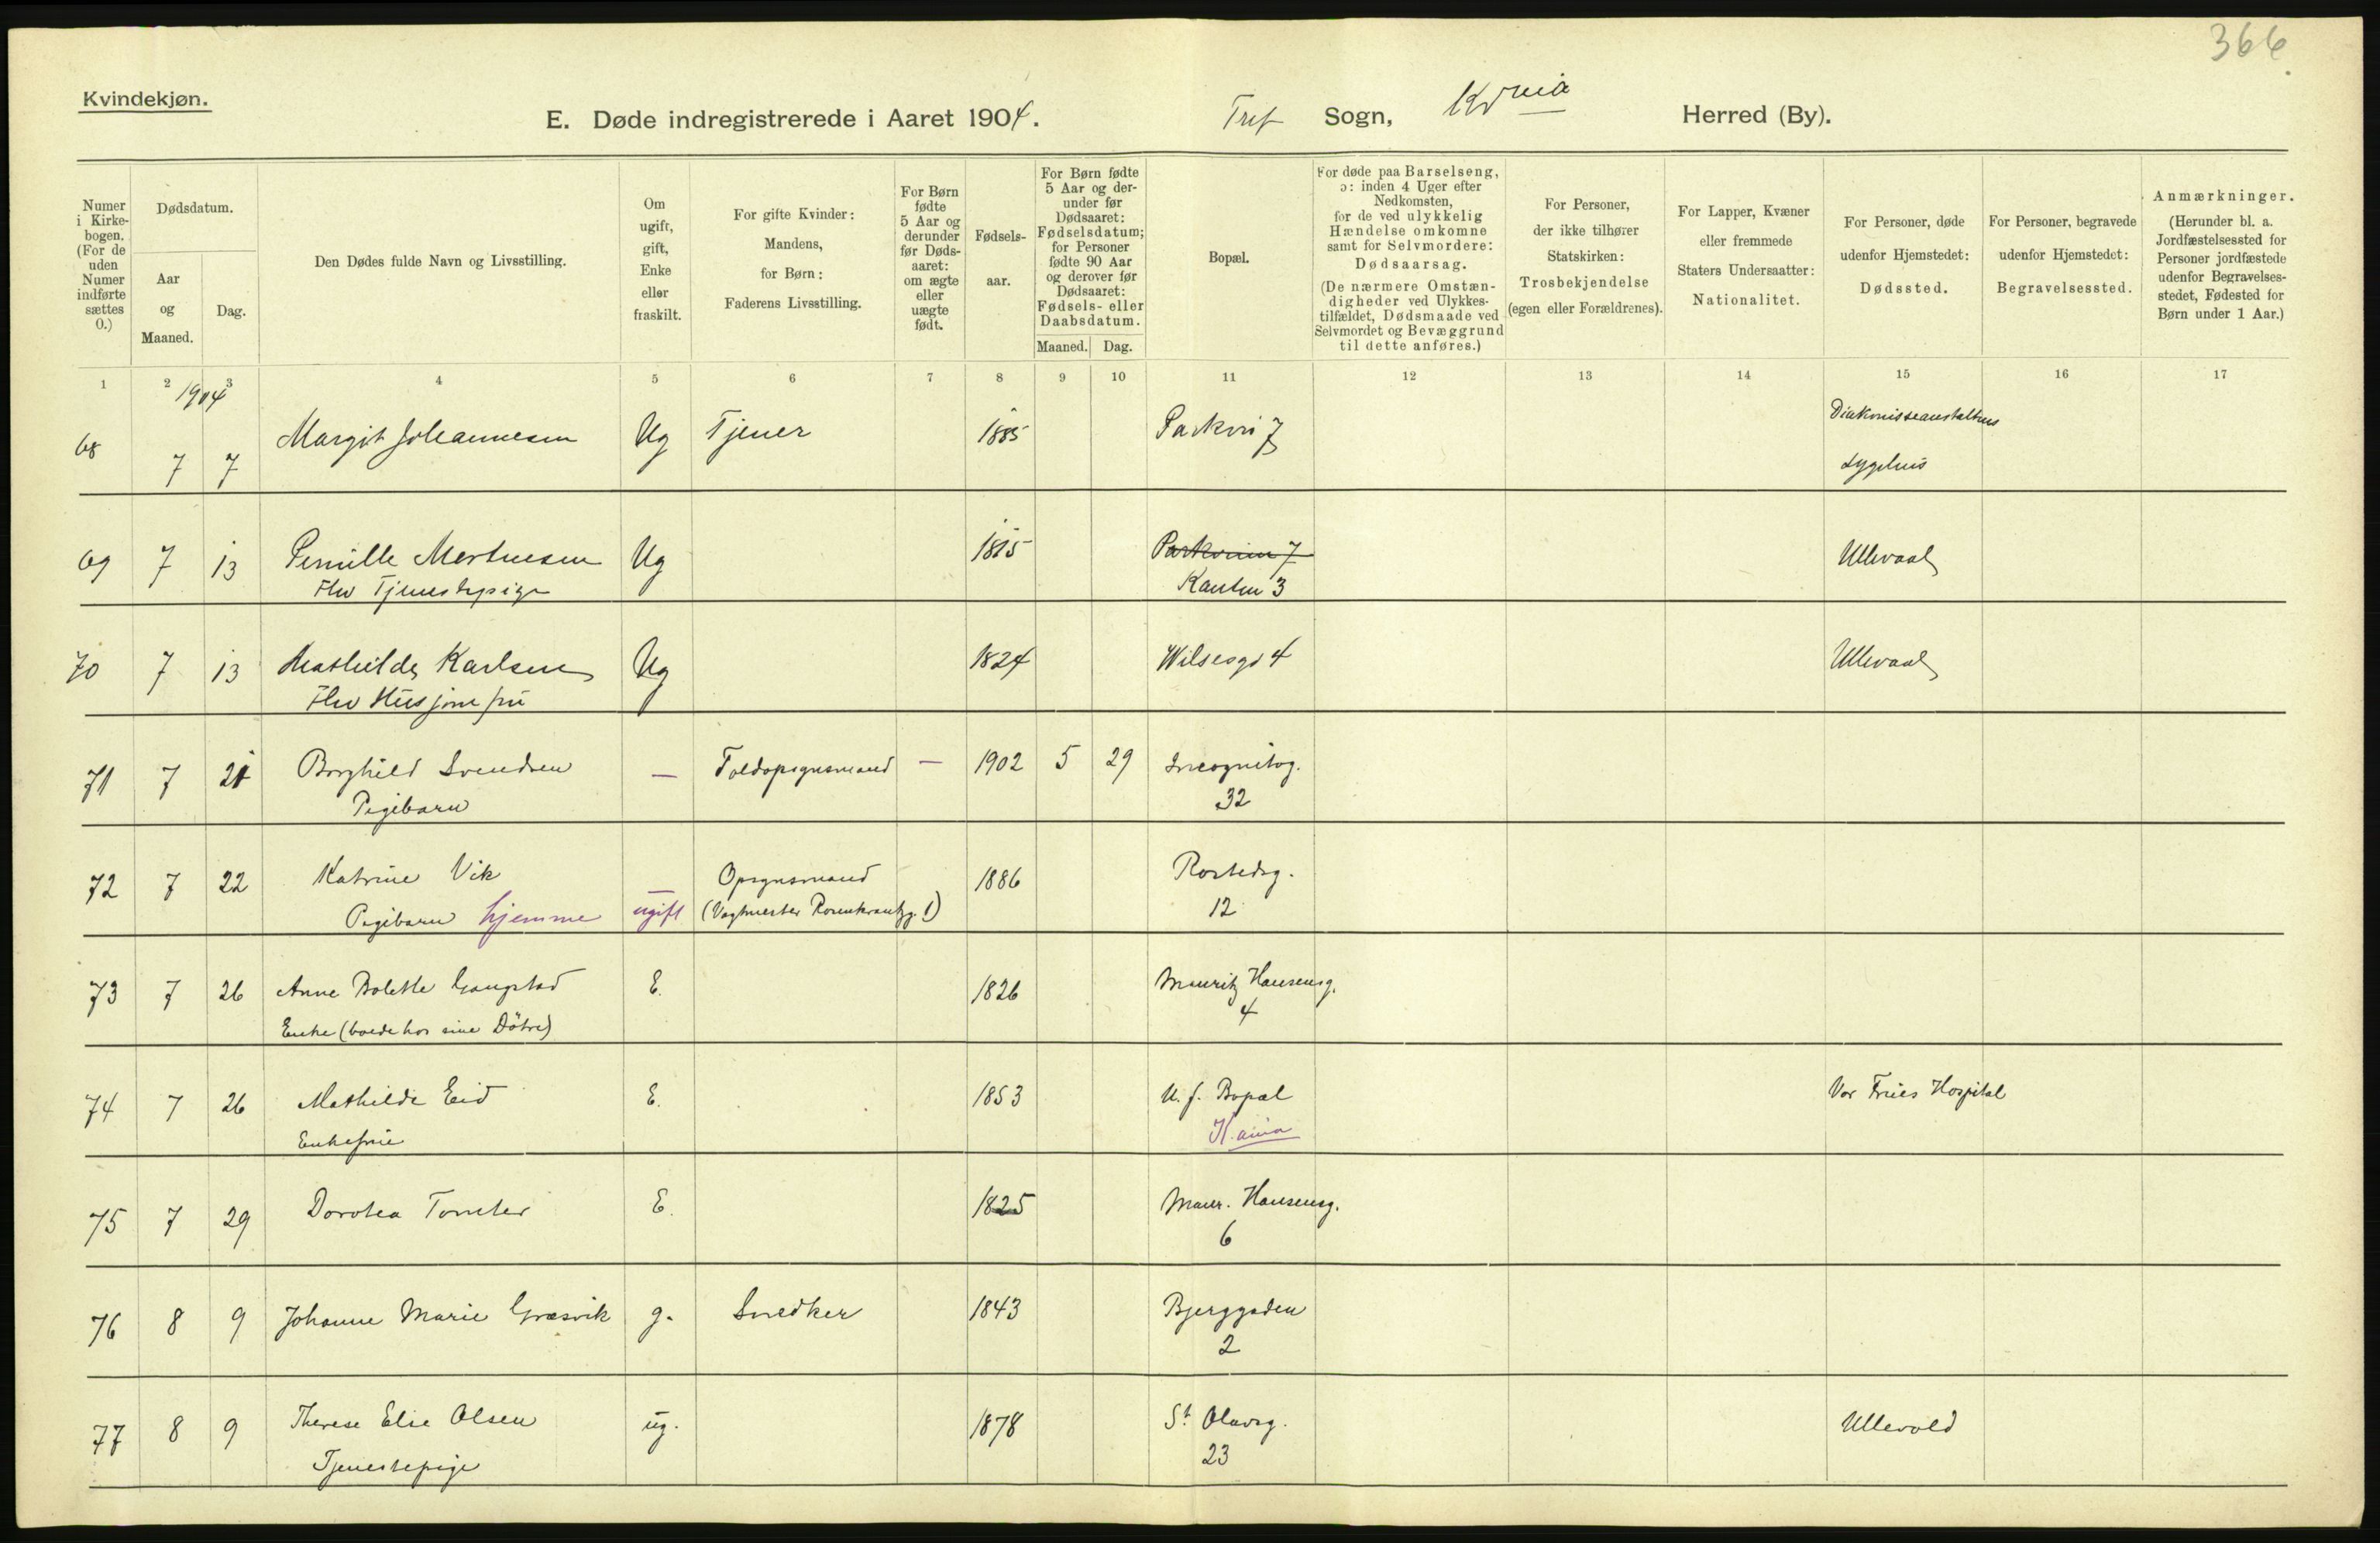 366
Kvindekjøn.
E. Døde indregistrerede i Aaret 1904. Tref Sogn, Krnia Herred (By).
Numer i Kirke-bogen. (For de uden Numer indførte sættes 0.)
Dødsdatum.
Aar og Maaned.
Dag.
Den Dødes fulde Navn og Livsstilling.
Om ugift, gift, Enke eller fraskilt.
For gifte Kvinder: Mandens, for Børn: Faderens Livsstilling.
For Børn fødte 5 Aar og derunder før Døds-aaret: om ægte eller uægte født.
Fødsels-aar.
For Børn fødte 5 Aar og der-under før Dødsaaret: Fødselsdatum; for Personer fødte 90 Aar og derover før Dødsaaret: Fødsels- eller Daabsdatum.
Maaned. Dag.
Bopæl.
For døde paa Barselseng, ɔ: inden 4 Uger efter Nedkomsten, for de ved ulykkelig Hændelse omkomne samt for Selvmordere: Dødsaarsag. (De nærmere Omstæn-digheder ved Ulykkes-tilfældet, Dødsmaade ved Selvmordet og Bevæggrund til dette anføres.)
For Personer, der ikke tilhører Statskirken: Trosbekjendelse (egen eller Forældrenes).
For Lapper, Kvæner eller fremmede Staters Undersaatter: Nationalitet.
For Personer, døde udenfor Hjemstedet: Dødssted.
For Personer, begravede udenfor Hjemstedet: Begravelsessted.
Anmærkninger. (Herunder bl. a. Jordfæstelsessted for Personer jordfæstede udenfor Begravelses-stedet, Fødested for Børn under 1 Aar.)
1 2 3 4 5 6 7 8 9 10 11 12 13 14 15 16 17
1904
68 7 7 Margit Johannesen Ug Tjener 1885 Parkvei 7 Diakonisseanstaltens
Sygehus
69 7 13 Pernille Mortensen Ug 1815 Parkveien 7 Ullevaal
Fhv Tjenestepige Kanten 3
70 7 13 Mathilde Karlsen Ug 1824 Wilsesgd 4 Ullevaal
Fhv Husjomfru
71 7 21 Borghild Svendsen — Toldopsynsmand — 1902 5 29 Incognitog.
Pigebarn 32
72 7 22 Katrine Vik Opsynsmand 1886 Rostedsg.
Pigebarn hjemme ugift (Vagtmester Rosenkrantzg. 1) 12
73 7 26 Anne Bolette Gangstad E. 1826 Mauritz Hansensg.
Enke (boede hos sine Döttre) 4
74 7 26 Mathilde Eid E. 1853 U. f. Bopæl Vor Frues Hospital
Enkefrue K.ania
75 7 29 Dorotea Tomter E. 1825 Maur. Hansensg.
6
76 8 9 Johanne Marie Græsvik g. Snedker 1843 Bjerggaden
2
77 8 9 Therese Elise Olsen ug. 1878 St Olavsg. Ullevold
Tjenestepige 23